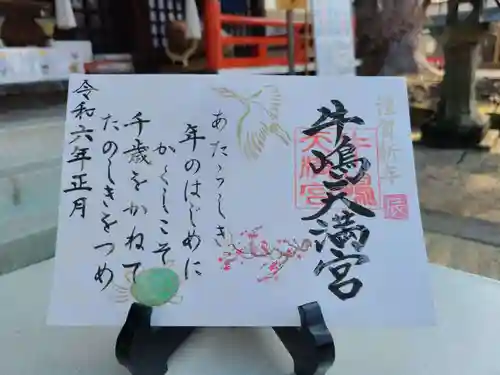 謹賀新年
辰
牛嶋天満宮
あたらしき
年のはじめに
かくしこそ
千歳をかねて
たのしきをつめ
令和六年正月